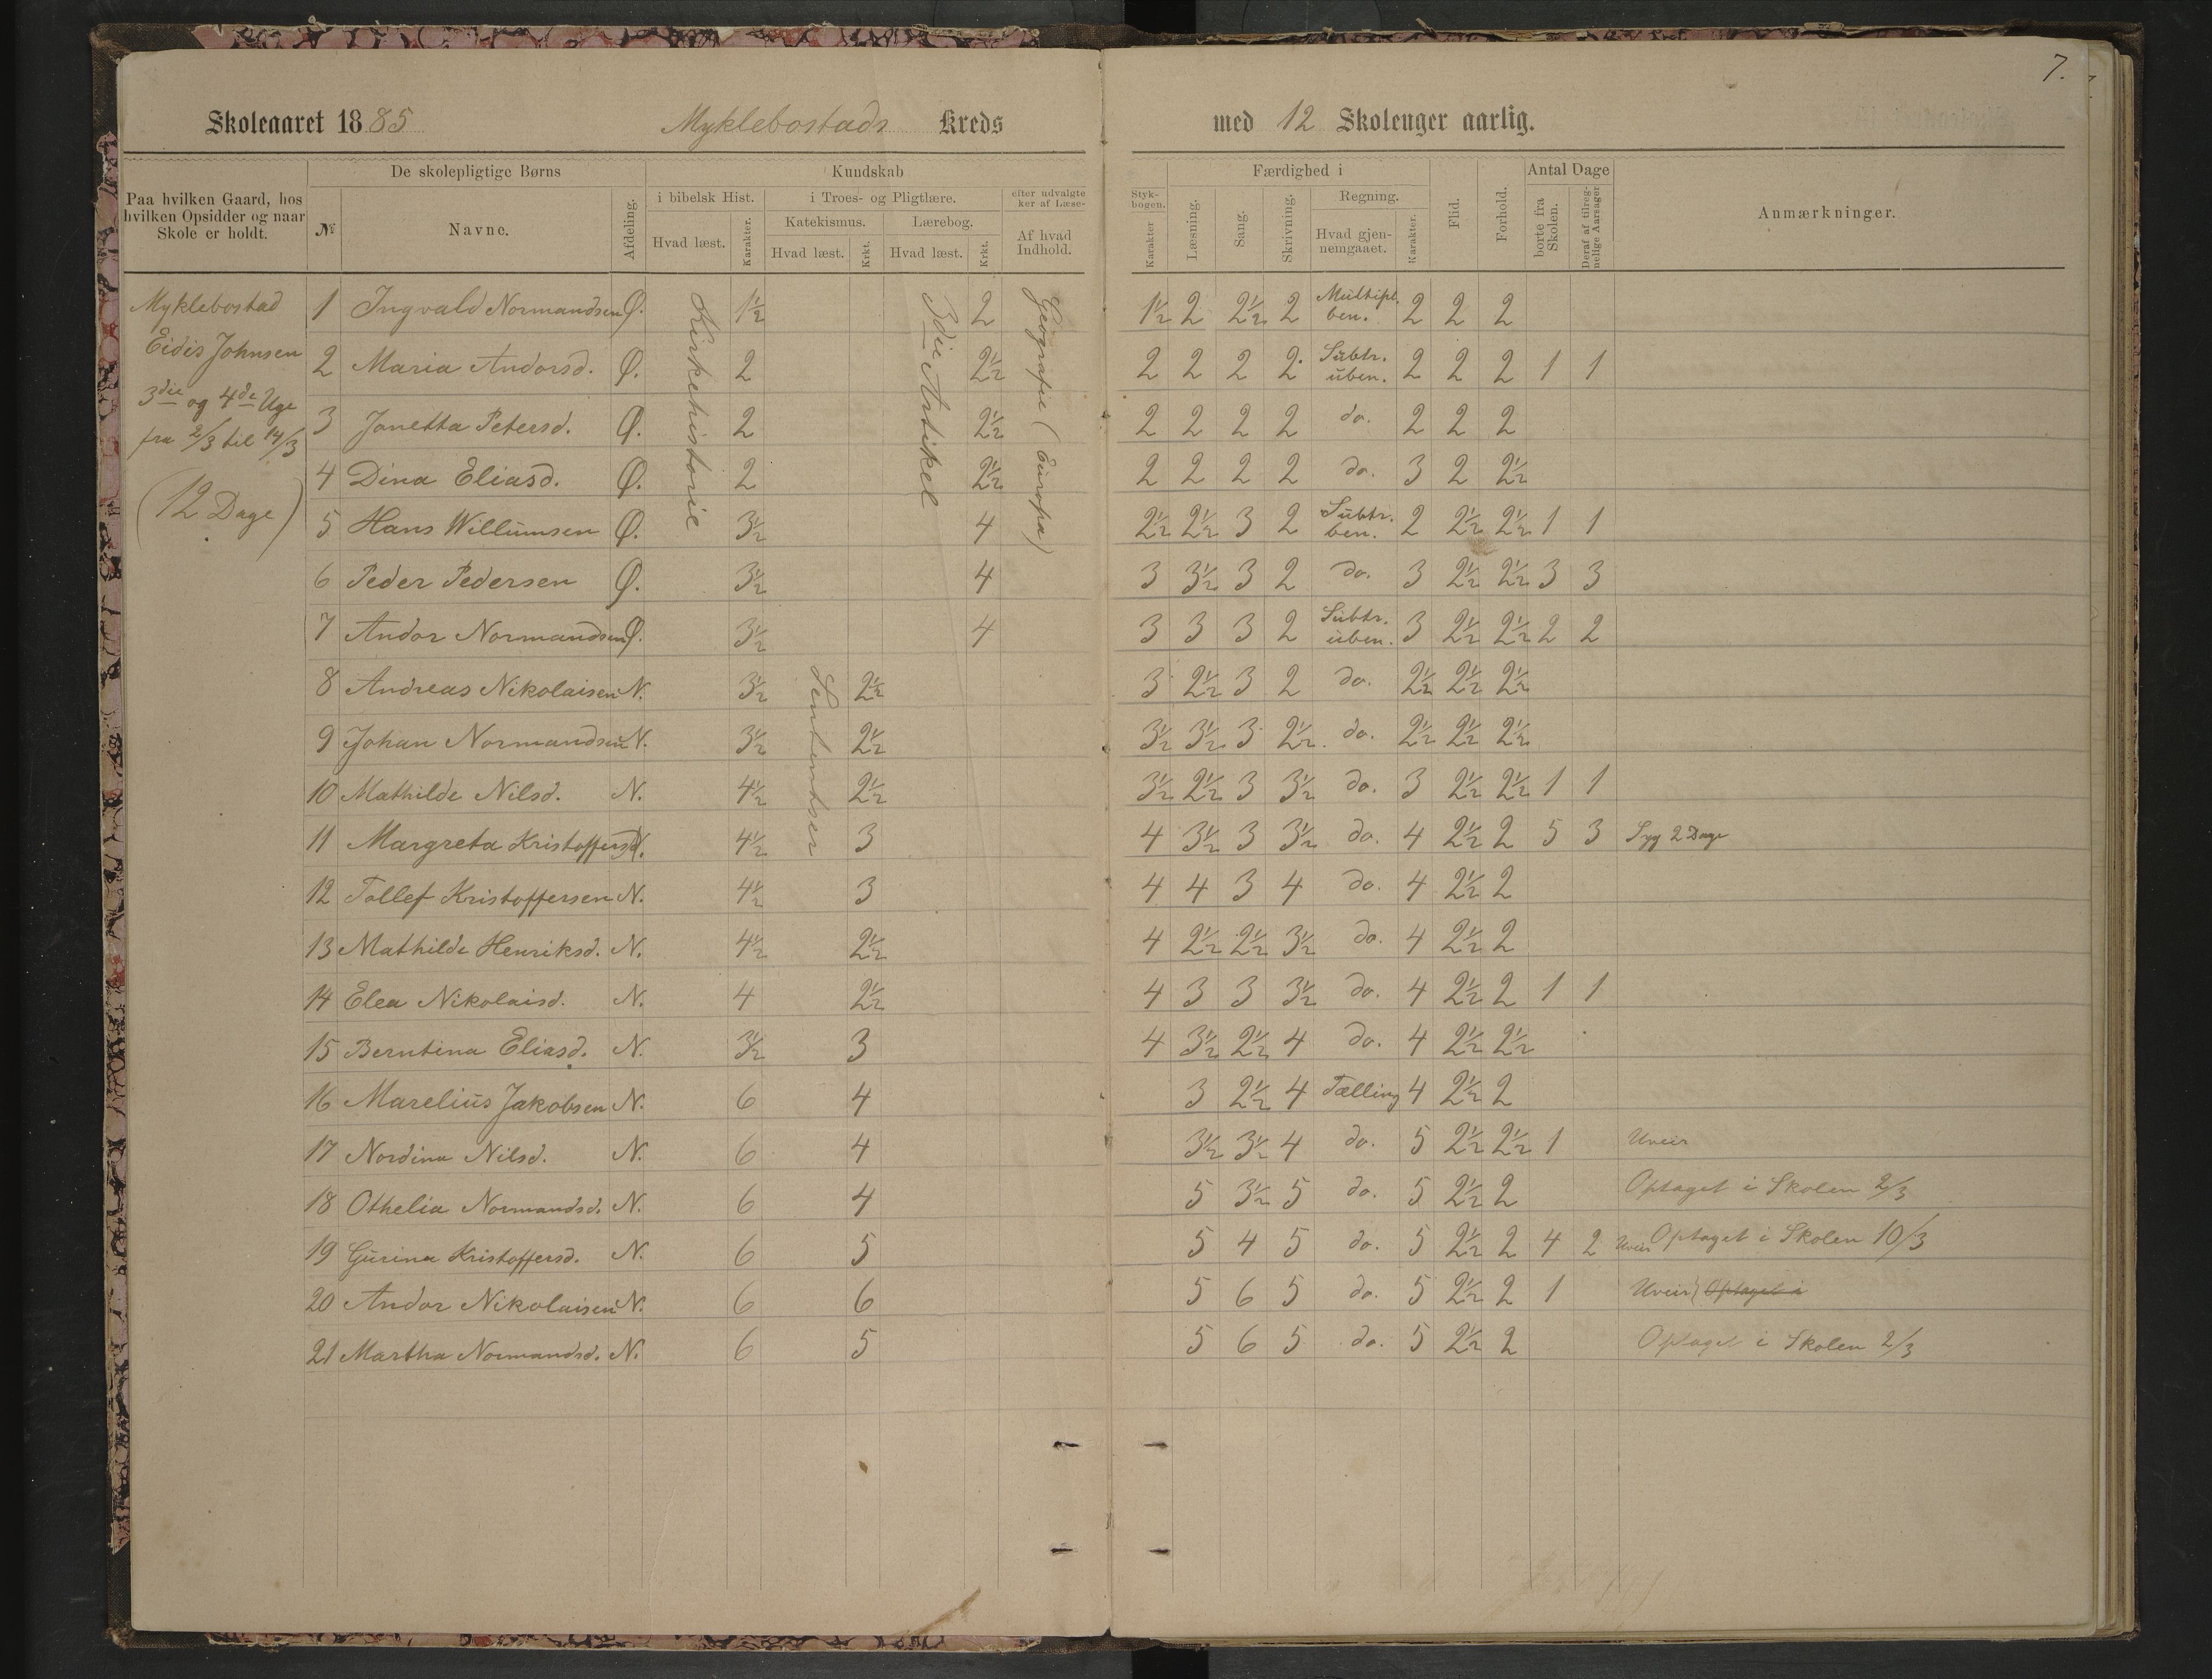 7.
Skoleaaret 1885 Myklebostads Kreds med 12 Skoleuger aarlig.
Paa hvilken Gaard, hos hvilken Opsidder og naar Skole er holdt.
De skolepligtige Børns
№ Navne. Afdeling.
Kundskab
i bibelsk Hist. Hvad læst. Karakter.
i Troes- og Pligtlære.
Katekismus. Hvad læst. Krkt.
Lærebog. Hvad læst. Krkt.
efter udvalgte ker af Læse-
Af hvad Indhold.
Styk-bogen. Karakter
Færdighed i
Læsning. Sang. Skrivning.
Regning. Hvad gjen-nemgaaet. Karakter.
Flid. Forhold.
Antal Dage
borte fra Skolen. Deraf af tilreg-nelige Aarsager
Anmærkninger.
Myklebostad
Eidis Johnsen
3die og 4de Uge
fra 2/3 til 14/3
(12 Dage)
Kirkehistorie
Sententser
3die Artikel
Geografie (Europa)
1 Ingvald Normandsen Ø. 1½ 2 1½ 2 2½ 2 Multipl. ben. 2 2 2
2 Maria Andorsd. Ø. 2 2½ 2 2 2 2 Subtr. uben. 2 2 2 1 1
3 Janetta Petersd. Ø. 2 2½ 2 2 2 2 do. 2 2 2
4 Dina Eliasd. Ø. 2 2½ 2 2 2 2 do. 3 2 2½
5 Hans Willumsen Ø. 3½ 4 2½ 2½ 3 2 Subtr. ben. 2 2½ 2½ 1 1
6 Peder Pedersen Ø. 3½ 4 3 3½ 3 2 do. 3 2½ 2½ 3 3
7 Andor Normandsen Ø. 3½ 4 3 3 3 2 Subtr. uben. 3 2½ 2½ 2 2
8 Andreas Nikolaisen N. 3½ 2½ 3 2½ 3 2 do. 2½ 2½ 2½
9 Johan Normandsen N. 3½ 2½ 3½ 3½ 3 2½ do. 2½ 2½ 2½
10 Mathilde Nilsd. N. 4½ 2½ 3½ 2½ 3 3½ do. 3 2½ 2½ 1 1
11 Margreta Kristoffersd. N. 4½ 3 4 3½ 3 3½ do. 4 2½ 2 5 3 Syg 2 Dage
12 Tollef Kristoffersen N. 4½ 3 4 4 3 4 do. 4 2½ 2
13 Mathilde Henriksd. N. 4½ 2½ 4 2½ 2½ 3½ do. 4 2½ 2
14 Elea Nikolaisd. N. 4 2½ 4 3 3 3½ do. 4 2½ 2 1 1
15 Berntina Eliasd. N. 3½ 3 4 3½ 2½ 4 do. 4 2½ 2½
16 Marelius Jakobsen N. 6 4 3 2½ 4 Tælling 4 2½ 2
17 Nordina Nilsd. N. 6 4 3½ 3½ 4 do. 5 2½ 2½ 1 Uveir
18 Othelia Normandsd. N. 6 4 5 3½ 5 do. 5 2½ 2 Optaget i Skolen 2/3
19 Gurina Kristoffersd. N. 6 5 5 4 5 do. 5 2½ 2 4 2 Uveir Optaget i Skolen 10/3
20 Andor Nikolaisen N. 6 6 5 6 5 do. 5 2½ 2 1 Uveir Optaget i
21 Martha Normandsd. N. 6 5 5 6 5 do. 5 2½ 2 Optaget i Skolen 2/3